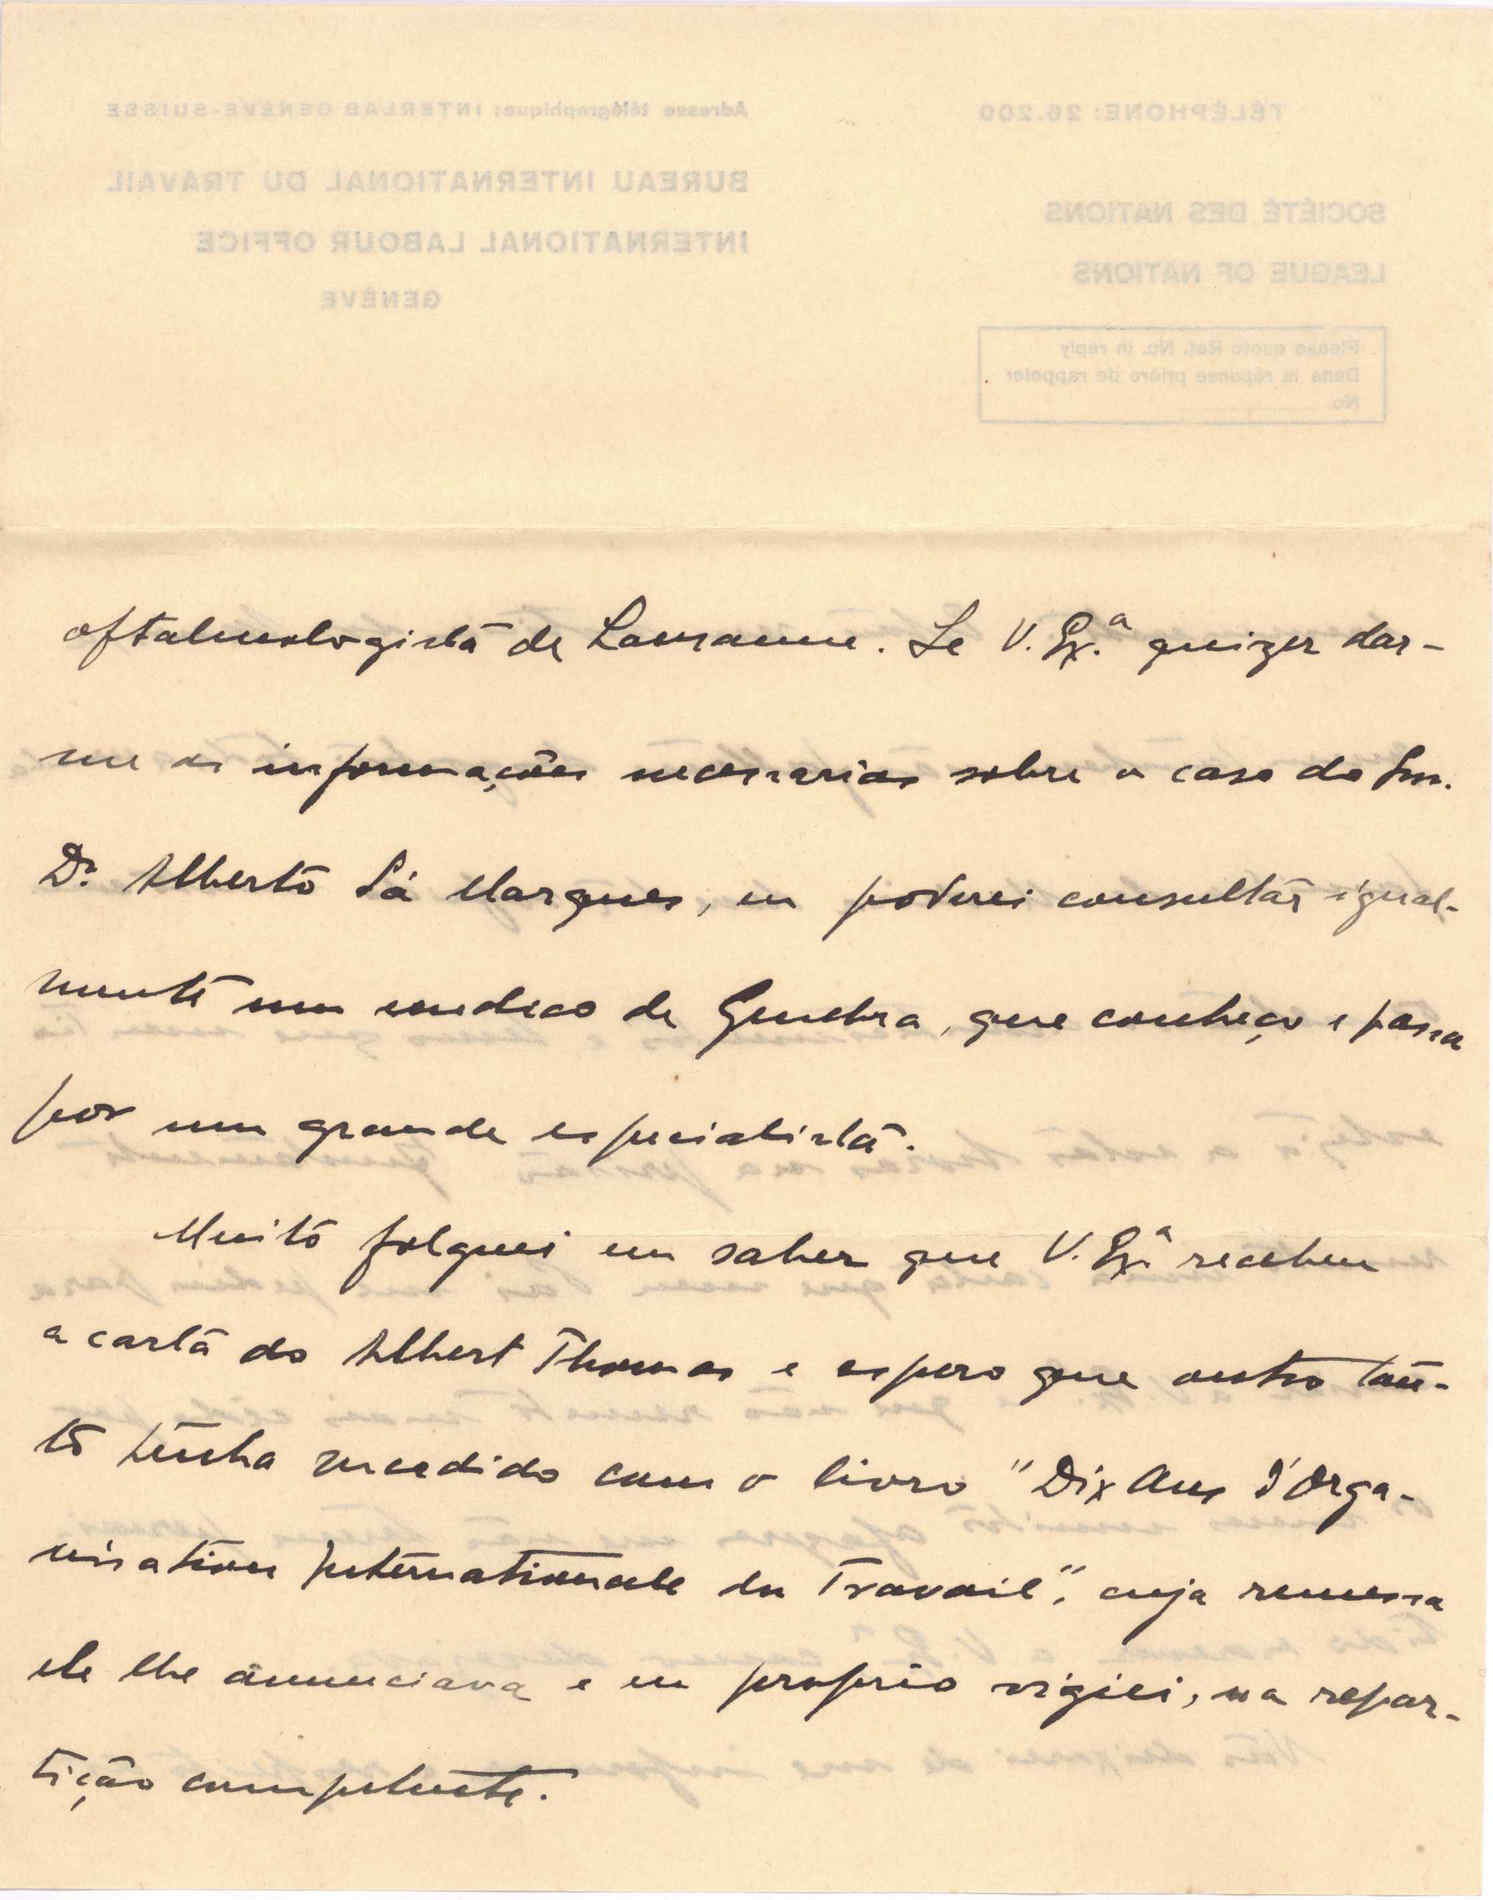 Adresse télégraphique: INTERLAB GENÈVE-SUISSE
BUREAU INTERNATIONAL DU TRAVAIL
INTERNATIONAL LABOUR OFFICE
GENÈVE
TÉLÉPHONE: 26.200
SOCIÉTÉ DES NATIONS
LEAGUE OF NATIONS
Please quote Ref. No. in reply
Dans la réponse prière de rappeler
No.
oftalmologista de Lausanne. Se V. Ex.ª quizer dar-
me as informações necessarias sobre o caso do Snr.
Dr. Alberto Sá Marques, eu poderei consultar igual-
mente um medico de Genebra, que conheço e passa
por um grande especialista.
Muito folguei em saber que V. Ex.ª recebeu
a carta do Albert Thomas e espero que outro tan-
to tenha sucedido com o livro "Dix Ans d'Orga-
nisation Internationale du Travail", cuja remessa
ele lhe anunciava e eu proprio vigiei, na repar-
tição competente.